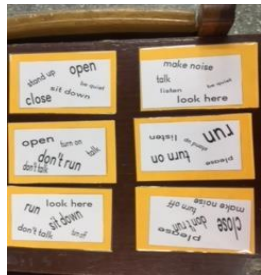 stand up open
be quiet
close sit down
make noise
talk be quiet
listen
look here
open turn on
don't run talk
don't talk
run
stand up listen
please turn on
run look here
sit down
don't talk turn off
make noise
turn off
close don't run
please